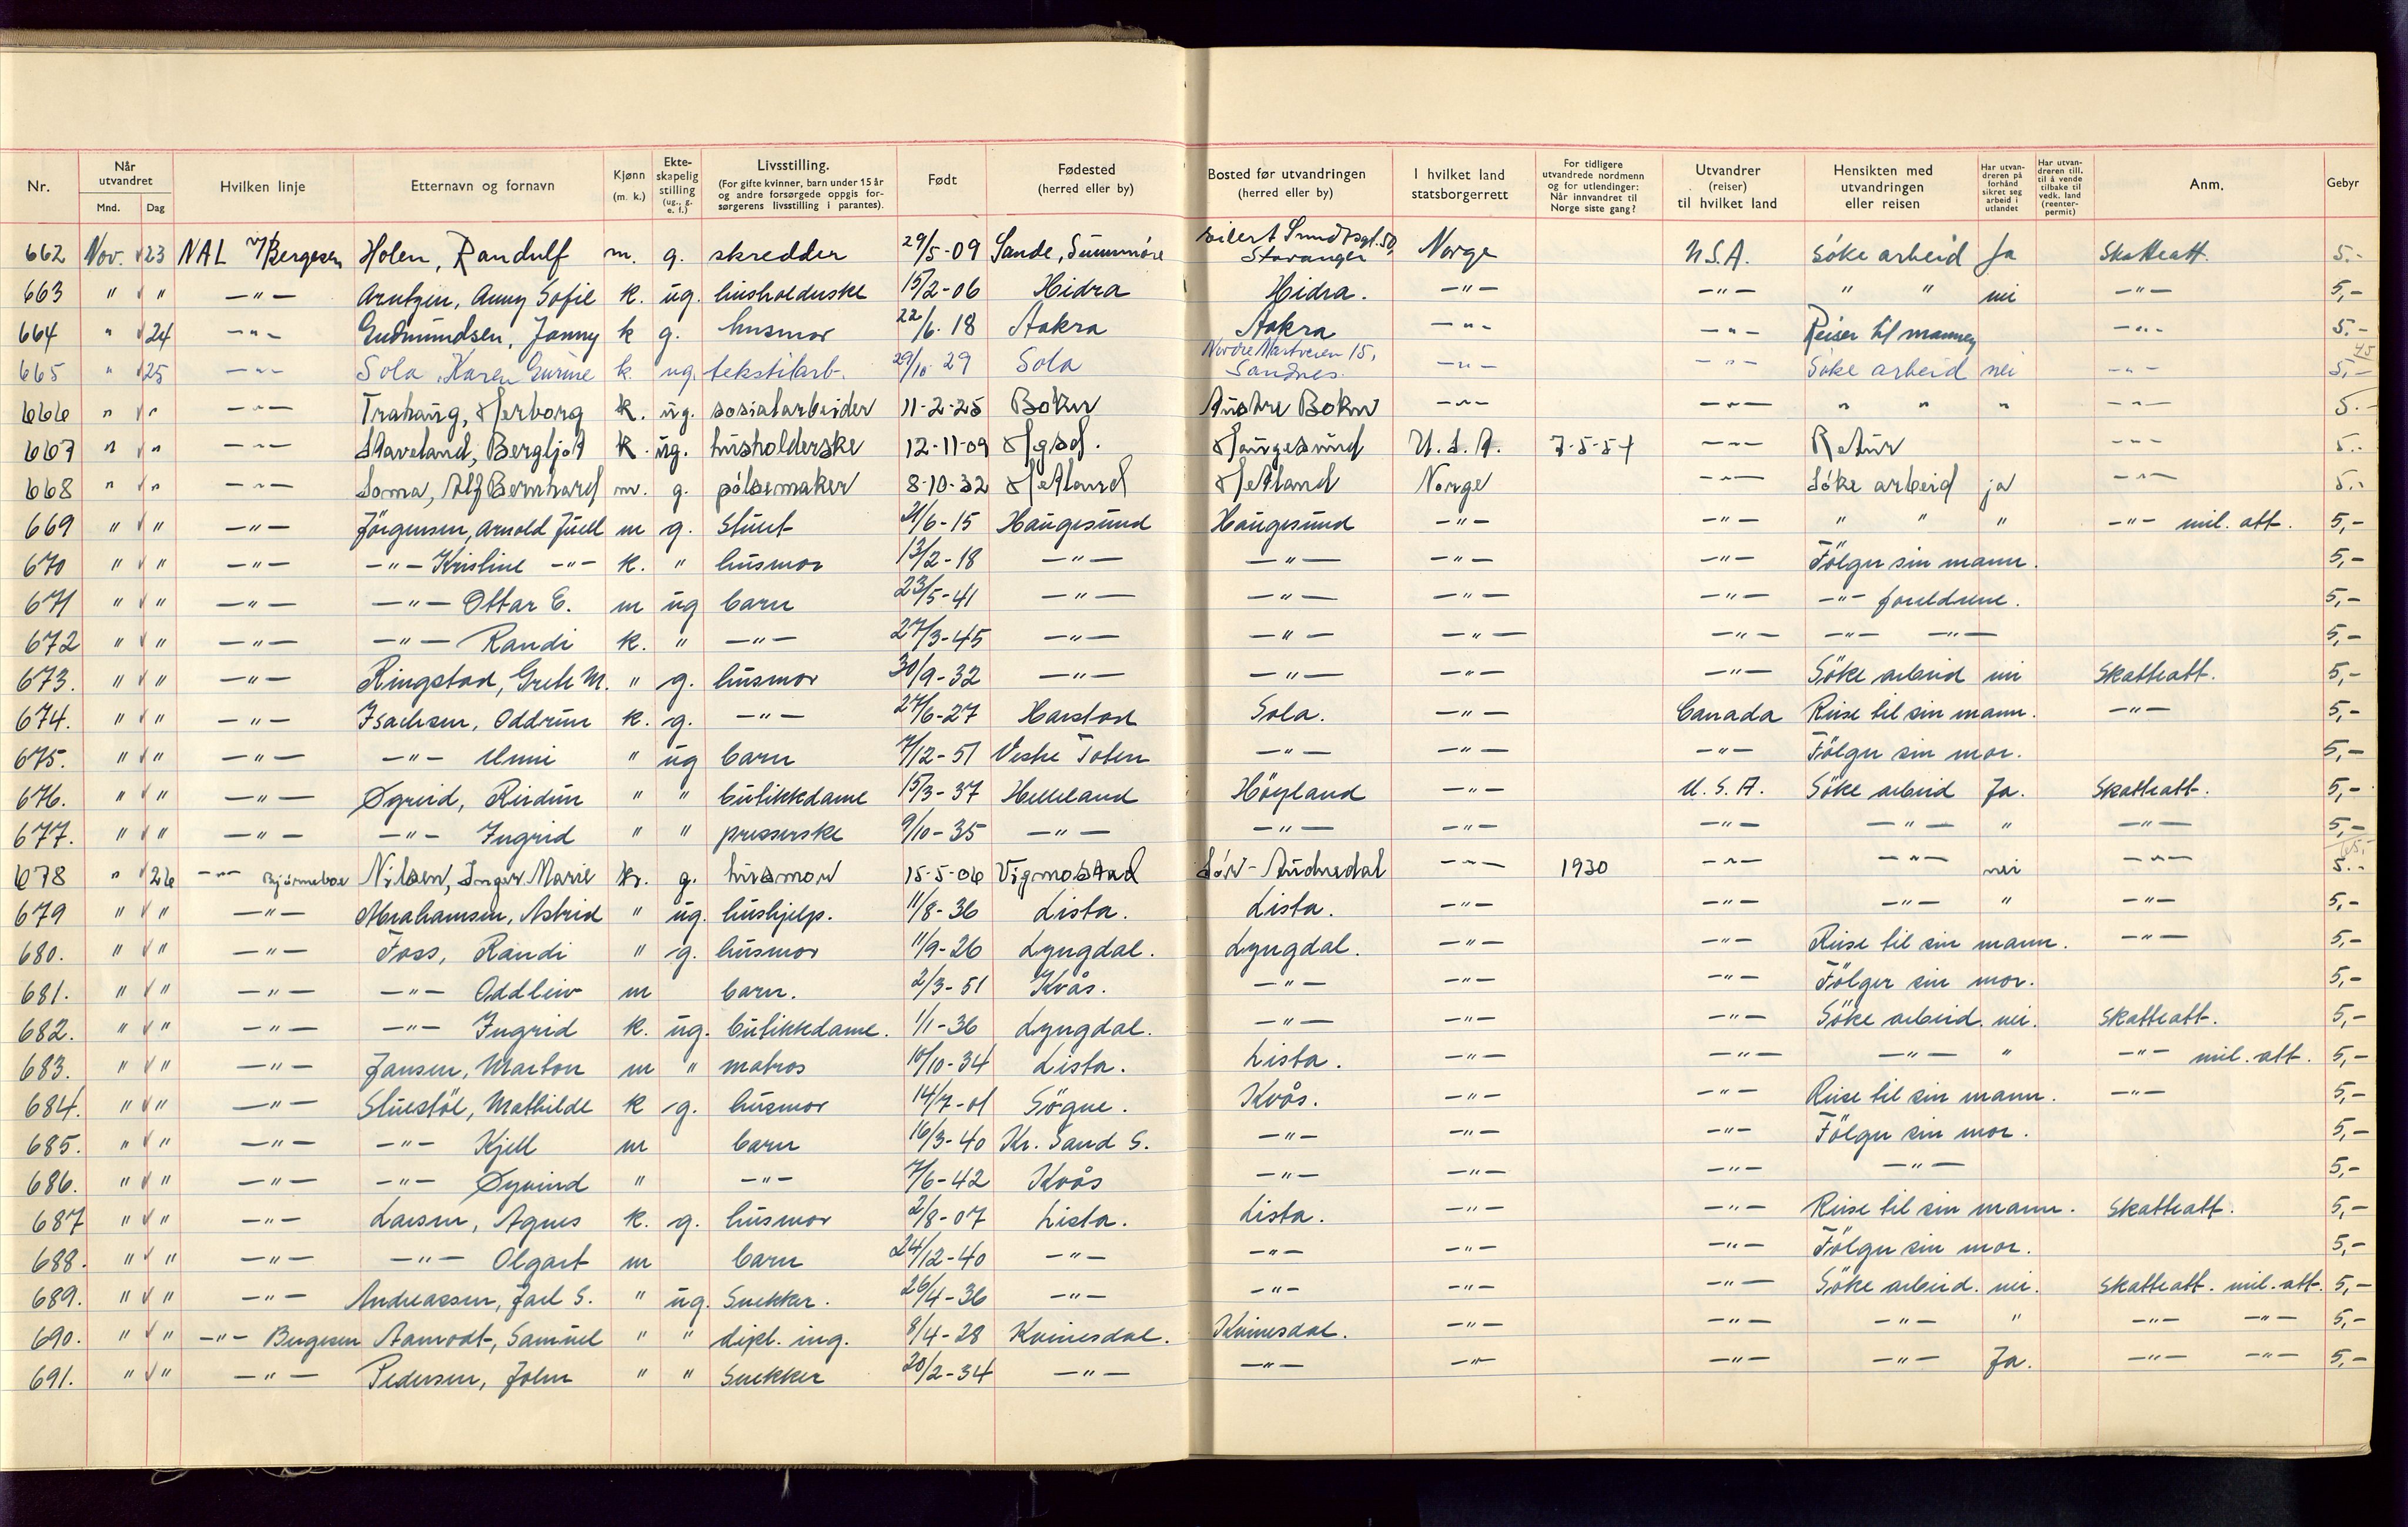 Nr. Når utvandret Mnd. Dag Hvilken linje Etternavn og fornavn Kjønn (m. k.) Ekte-skapelig stilling (ug., g. e. f.) Livsstilling. (For gifte kvinner, barn under 15 år og andre forsørgede oppgis for-sørgerens livsstilling i parantes). Født Fødested (herred eller by) Bosted før utvandringen (herred eller by) I hvilket land statsborgerrett For tidligere utvandrede nordmenn og for utlendinger: Når innvandret til Norge siste gang? Utvandrer (reiser) til hvilket land Hensikten med utvandringen eller reisen Har utvan-dreren på forhånd sikret seg arbeid i utlandet Har utvan-dreren till. til å vende tilbake til vedk. land (reenter-permit) Anm. Gebyr
662 Nov. √ 23 NAL v/Bergesen Holen, Randulf m. g. skredder 29/5-09 Sande, Sunnmöre Eilert Sundtsgt. 50, Stavanger Norge U.S.A. Söke arbeid Ja Skatteatt. 5.-
663 " √ " -"- Arntzen, Anny Sofie k. ug. husholderske 15/2-06 Hidra Hidra. -"- -"- " " nei -"- 5,-
664 " √ 24 -"- Gudmundsen, Jonny k g. husmor 22/6-18 Aakra Aakra -"- -"- Reiser til mannen -"- 5.-
665 " √ 25 -"- Sola, Karen Gurine k. ug. tekstilarb. 29/10-29 Sola Nordre Martveien 15, Sandnes. -"- -"- Söke arbeid nei -"- 5,- 45
666 " √ " -"- Trahaug, Herborg k. ug. sosialarbeider 11-2-25 Bokn Austre Bokn -"- -"- " " " -"- 5.-
667 " √ " -"- Staveland, Bergljot k. ug. husholderske 12-11-09 Hgsd. Haugesund U.S.A. 7-5-54 -"- Retur -"- 5.-
668 " √ " -"- Soma, Alf Bernhard m. g. pölsemaker 8-10-32 Hetland Hetland Norge -"- Söke arbeid ja -"- 5.-
669 " √ " -"- Jörgensen, Arnold Juell m g. Stuert 21/6-15 Haugesund Haugesund -"- -"- " " " -"- mil. att. 5,-
670 " √ " -"- -"- Kristine -"- k. " husmor 13/2-18 -"- -"- -"- -"- Fölger sin mann. 5,-
671 " √ " -"- -"- Ottar E. m ug barn 23/5-41 -"- -"- -"- -"- -"- foreldrene. 5,-
672 " √ " -"- -"- Randi k. " -"- 27/3-45 -"- -"- -"- -"- -"- -"- 5,-
673. " √ " -"- Ringstad, Greth M. " g. husmor 30/9-32 -"- -"- -"- -"- Söke arbeid nei Skatteatt. 5,-
674. " √ " -"- Isachsen, Oddrun k. g. -"- 27/6-27 Harstad Sola. -"- Canada Reise til sin mann. -"- 5,-
675. " √ " -"- -"- Unni " ug barn 7/12-51 Vestre Toten -"- -"- -"- Fölger sin mor. 5,-
676. " √ " -"- Øgreid, Reidun " " butikkdame 15/3-37 Helleland Höyland -"- U.S.A. Söke arbeid Ja. Skatteatt. 5,-
677. " √ " -"- -"- Ingrid " " presserske 9/10-35 -"- -"- -"- -"- -"- " -"- 5,-
678 " √ 26 -"- Bjørneboe Nilsen, Inger Marie k. g. husmor 15-5-06 Vigmostad Sör-Audnedal -"- 1930 -"- -"- nei -"- 5.-
679 " √ " -"- Abrahamsen, Astrid " ug. hushjelp. 11/8-36 Lista. Lista. -"- -"- -"- " -"- 5,-
680. " √ " -"- Foss, Randi " g. husmor 11/9-26 Lyngdal. Lyngdal. -"- -"- Reise til sin mann. -"- 5,-
681. " √ " -"- -"- Oddleiv m barn. 2/3-51 Kvås. -"- -"- -"- Fölger sin mor. 5,-
682. " √ " -"- -"- Ingrid k. ug. butikkdame. 1/1-36 Lyngdal. -"- -"- -"- Söke arbeid. nei. Skatteatt. 5,-
683. " √ " -"- Jansen, Marton m " matros 10/10-34 Lista. Lista. -"- -"- -"- " -"- mil. att. 5,-
684. " √ " -"- Stuestöl, Mathilde k g. husmor 14/7-01 Sögne. Kvås. -"- -"- Reise til sin mann. -"- 5,-
685. " √ " -"- -"- Kjell m barn 16/3-40 Kr. Sand S. -"- -"- -"- Fölger sin mor. 5,-
686. " √ " -"- -"- Øyvind " -"- 7/6-42 Kvås -"- -"- -"- -"- 5,-
687 " √ " -"- Larsen, Agnes k. g. husmor 2/8-07 Lista. Lista. -"- -"- Reise til sin mann. Skatteatt. 5,-
688. " √ " -"- -"- Olgart m barn 24/12-40 -"- -"- -"- -"- Fölger sin mor. 5,-
689. " √ " -"- Andreassen, Jarl S. " ug. Snekker. 26/4-36 -"- -"- -"- -"- Söke arbeid. nei. Skatteatt. mil. att. 5,-
690. " √ " -"- Bergesen Aamodt, Samuel " " dipl. ing. 8/4-28 Kvinesdal. Kvinesdal. -"- -"- -"- " -"- -"- 5,-
691. " √ " -"- Pedersen, John " " Snekker 20/2-34 -"- -"- -"- -"- -"- Ja. -"- -"- 5,-